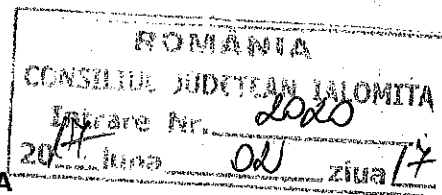 ROMÂNIA
CONSILIUL JUDEŢEAN IALOMIŢA
Intrare Nr. 2020
2017 luna 02 ziua 17
A